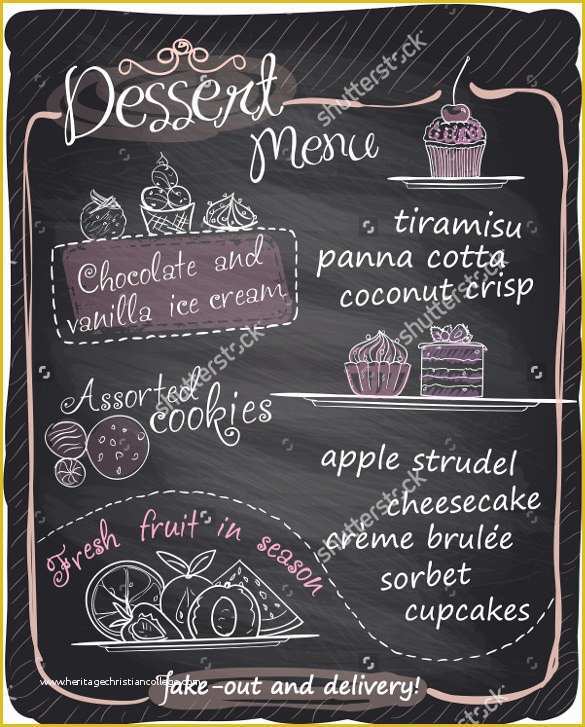 Dessert
Menu
Chocolate and
vanilla ice cream
Assorted
cookies
Fresh fruit in season
tiramisu
panna cotta
coconut crisp
apple strudel
cheesecake
crème brulée
sorbet
cupcakes
take-out and delivery!
www.heritagechristiancollege.com
shutterstock
shutterstock
shutterstock
shutterstock
shutterstock